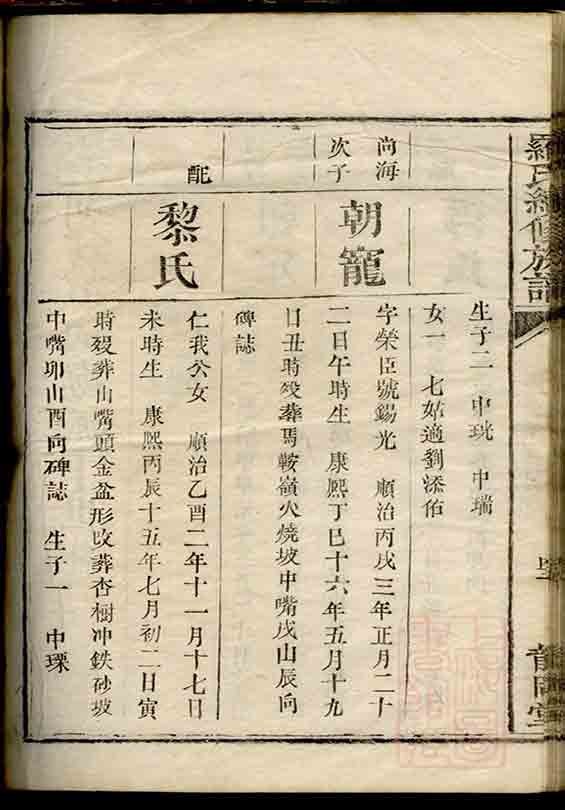 羅氏續修族譜
生子二 中珖 中瑞
女一 七姑適劉添佑
尚海
次子
朝寵
字榮臣號錫光 順治丙戌三年正月二十
二日午時生 康熙丁巳十六年五月十九
日丑時歿葬馬鞍嶺火燒坡中嘴戌山辰向
碑誌
配
黎氏
仁我公女 順治乙酉二年十一月十七日
未時生 康熙丙辰十五年七月初二日寅
時歿葬山嘴頭金盆形改葬杏樹冲鉄砂坡
中嘴卯山酉向碑誌 生子一 中瑮